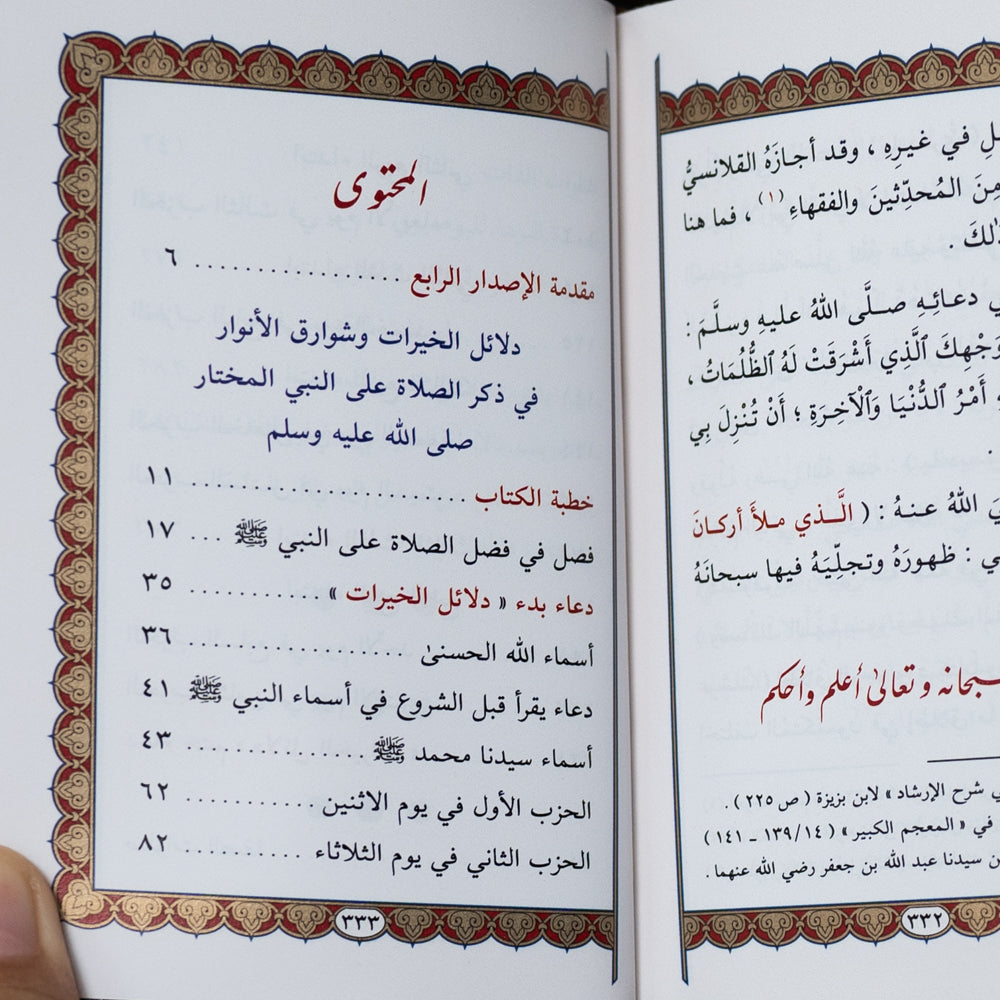 في غيرِهِ ، وقد أجازَهُ القلانسيُّ
مِنَ المُحدِّثينَ والفقهاءِ(١) ، فما هنا
ذٰلكَ .
دعـائِـهِ صـلَّى اللهُ عليهِ وسلَّمَ :
وَجْهِكَ ٱلَّذِي أَشْرَقَتْ لَهُ ٱلظُّلُمَاتُ ،
أَمْرُ ٱلدُّنْيَا وَٱلْآخِـرَةِ ؛ أَنْ تُنْزِلَ بِي
.
اللهُ عـنـهُ : ( الَّـــذي مـلأَ أركـانَ
: ظهورَهُ وتجلِّيَهُ فيها سبحانَهُ
سبحانه وتعالىٰ أعلم وأحكم
شرح الإرشاد » لابن بزيزة ( ص ٢٢٥ ) .
في « المعجم الكبير » ( ١٣٩/١٤ ـ ١٤١ )
سيدنا عبد الله بن جعفر رضي الله عنهما .
٣٣٢
المحتوى
مقدمة الإصدار الرابع . . . . . . . . . . . . . . . . ٦
دلائل الخيرات وشوارق الأنوار
في ذكر الصلاة على النبي المختار
صلى الله عليه وسلم
خطبة الكتاب . . . . . . . . . . . . . . . . . . . . . ١١
فصل في فضل الصلاة على النبي ﷺ . . . ١٧
دعاء بدء « دلائل الخيرات » . . . . . . . . . . ٣٥
أسماء الله الحسنىٰ . . . . . . . . . . . . . . . . . ٣٦
دعاء يقرأ قبل الشروع في أسماء النبي ﷺ ٤١
أسماء سيدنا محمد ﷺ . . . . . . . . . . . . . ٤٣
الحزب الأول في يوم الاثنين . . . . . . . . . . ٦٢
الحزب الثاني في يوم الثلاثاء . . . . . . . . . . ٨٢
٣٣٣